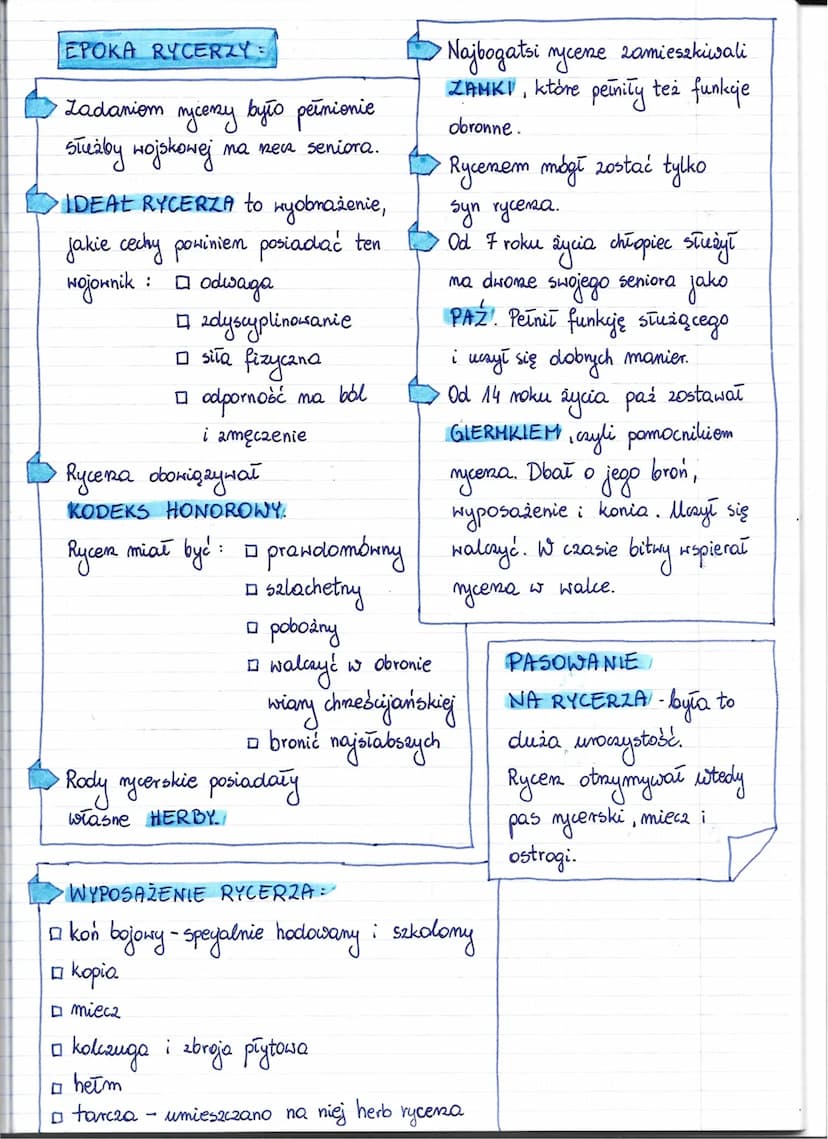 EPOKA RYCERZY:
Zadaniem rycerzy było pełnienie
służby wojskowej na rzecz seniora.
IDEAŁ RYCERZA to wyobrażenie,
jakie cechy powinien posiadać ten
wojownik:
odwaga
zdyscyplinowanie
siła fizyczna
odporność na ból
i zmęczenie
Rycerza obowiązywał
KODEKS HONOROWY.
Rycerz miał być: prawdomówny
szlachetny
pobożny
walczyć w obronie
wiary chrześcijańskiej
bronić najsłabszych
Rody rycerskie posiadały
własne HERBY.
Najbogatsi rycerze zamieszkiwali
ZAMKI, które pełniły też funkcje
obronne.
Rycerzem mógł zostać tylko
syn rycerza.
Od 7 roku życia chłopiec służył
na dworze swojego seniora jako
PAŹ. Pełnił funkcję służącego
i uczył się dobrych manier.
Od 14 roku życia paź zostawał
GIERMKIEM, czyli pomocnikiem
rycerza. Dbał o jego broń,
wyposażenie i konia. Uczył się
walczyć. W czasie bitwy wspierał
rycerza w walce.
PASOWANIE
NA RYCERZA - była to
duża uroczystość.
Rycerz otrzymywał wtedy
pas rycerski, miecz i
ostrogi.
WYPOSAŻENIE RYCERZA:
koń bojowy - specjalnie hodowany i szkolony
kopia
miecz
kolczuga i zbroja płytowa
hełm
tarcza - umieszczano na niej herb rycerza